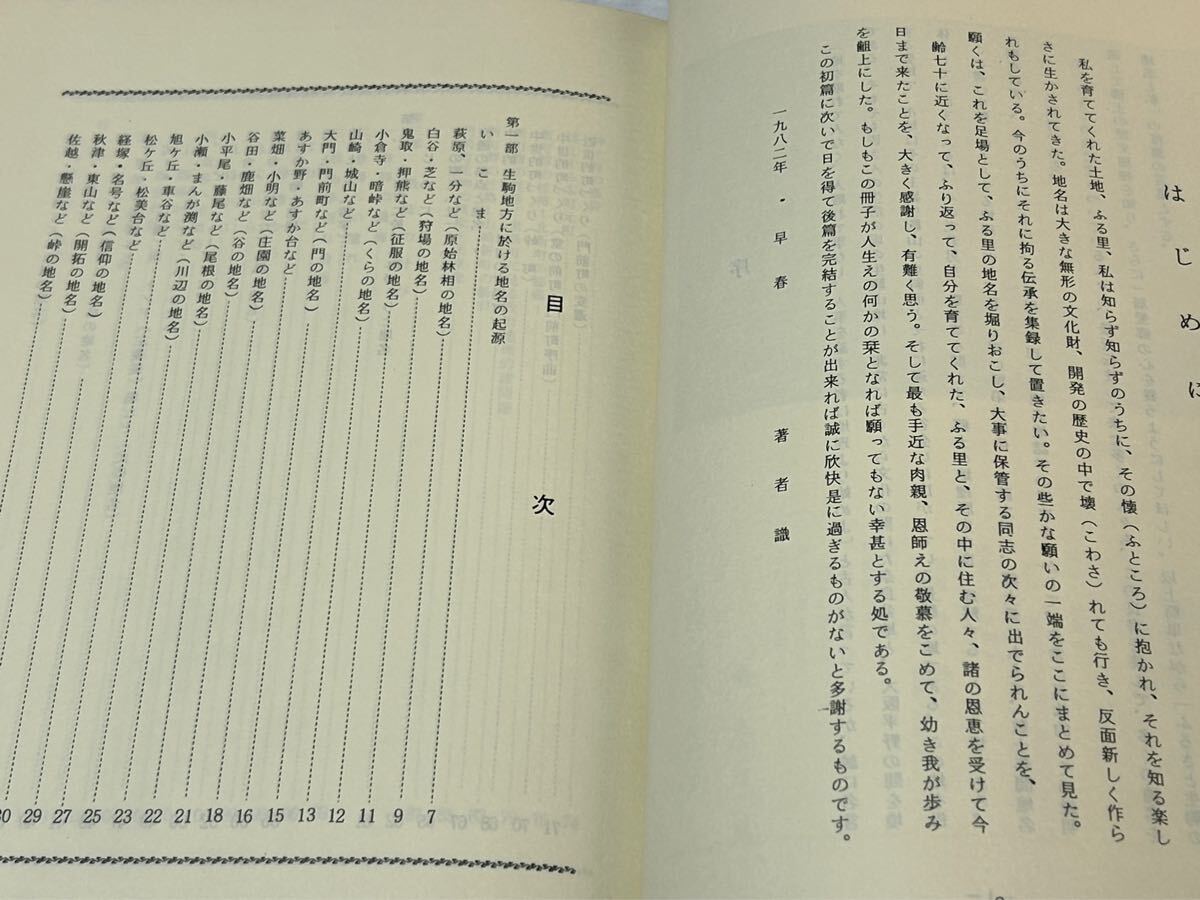 はじめに
私を育ててくれた土地、ふる里、私は知らず知らずのうちに、その懐（ふところ）に抱かれ、それを知る楽し
さに生かされてきた。地名は大きな無形の文化財、開発の歴史の中で壊（こわさ）れても行き、反面新しく作ら
れもしている。今のうちにそれに拘る伝承を集録して置きたい。その些かな願いの一端をここにまとめて見た。
願くは、これを足場として、ふる里の地名を堀りおこし、大事に保管する同志の次々に出でられんことを、
齢七十に近くなって、ふり返って、自分を育ててくれた、ふる里と、その中に住む人々、諸の恩恵を受けて今
日まで来たことを、大きく感謝し、有難く思う。そして最も手近な肉親、恩師えの敬慕をこめて、幼き我が歩み
を齟上にした。もしもこの冊子が人生えの何かの栞となれば願ってもない幸甚とする処である。
この初篇に次いで日を得て後篇を完結することが出来れば誠に欣快是に過ぎるものがないと多謝するものです。
一九八二年・早春
著者識
目次
第一部 生駒地方に於ける地名の起源
いこま
萩原、一分など（原始林相の地名）
白谷・芝など（狩場の地名）
鬼取・押熊など（征服の地名）
小倉寺・暗峠など（くらの地名）
山崎・城山など
大門・門前町など（門の地名）
あすか野・あすか台など
菜畑・小明など（庄園の地名）
谷田・鹿畑など（谷の地名）
小平尾・藤尾など（尾根の地名）
小瀬・まんが渕など（川辺の地名）
旭ヶ丘・車谷など
松ヶ丘・松美台など
経塚・名号など（信仰の地名）
秋津・東山など（開拓の地名）
佐越・懸崖など（峠の地名）
7 9 11 12 13 15 16 18 21 22 23 25 27 29 30